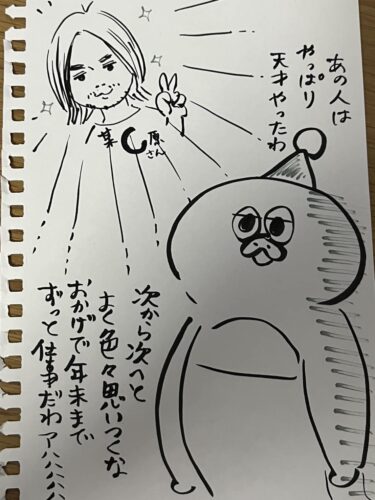 あの人は
やっぱり
天才やったわ
原さん
次から次へと
よく色々思いつくな
おかげで年末まで
ずっと仕事だわ アハハハハ